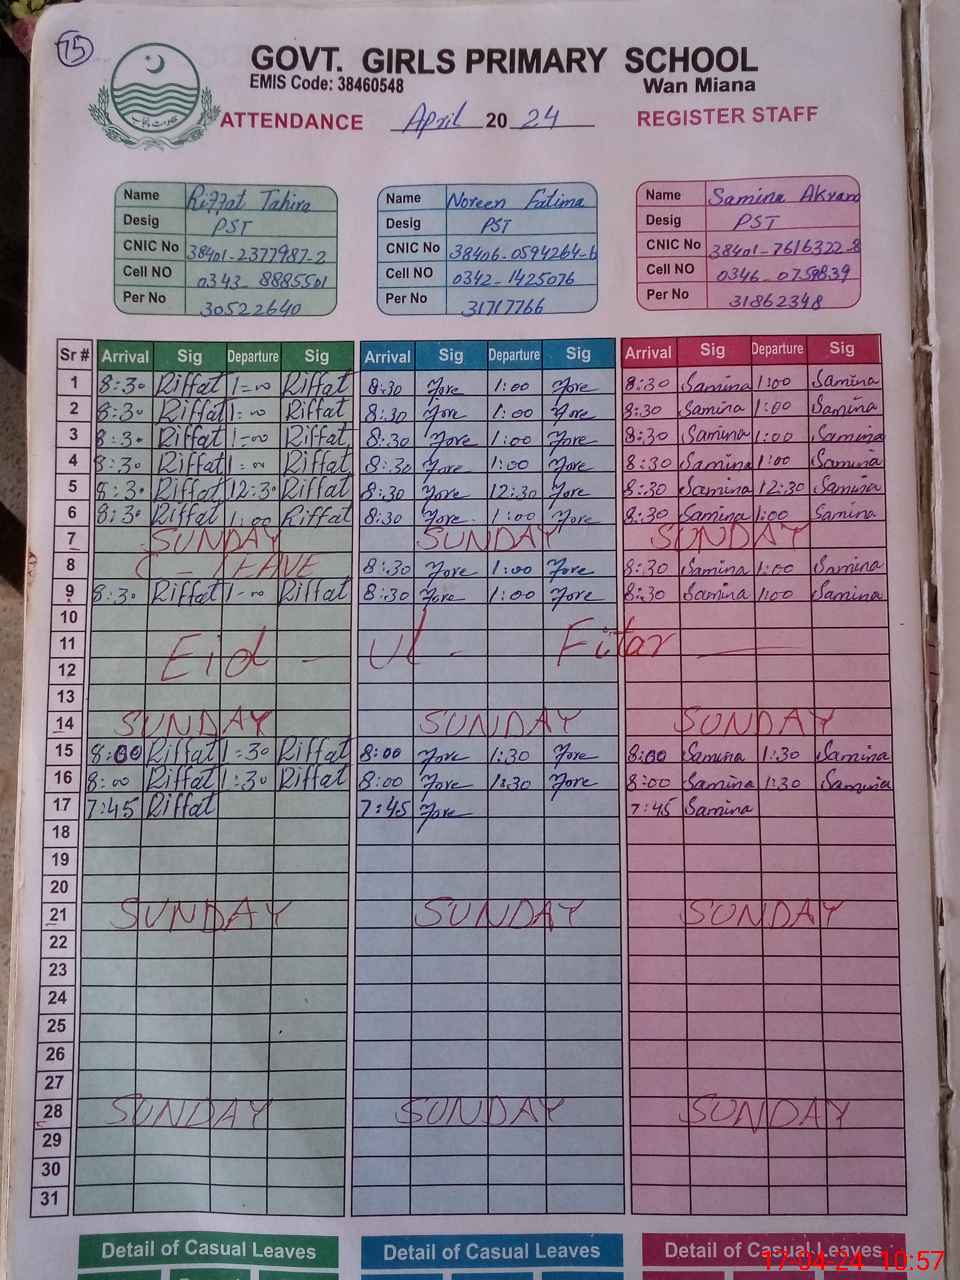 75
GOVT. GIRLS PRIMARY SCHOOL
EMIS Code: 38460548 Wan Miana
ATTENDANCE April 20 24 REGISTER STAFF
Name Riffat Tahira Name Noreen Fatima Name Samina Akram
Desig PST Desig PST Desig PST
CNIC No 38401-2377987-2 CNIC No 38406-0594264-6 CNIC No 38401-7616322-8
Cell NO 0343-8885501 Cell NO 0342-1425076 Cell NO 0346-0759839
Per No 30522640 Per No 31717766 Per No 31862348
Sr # Arrival Sig Departure Sig Arrival Sig Departure Sig Arrival Sig Departure Sig
1 8:30 Riffat 1=00 Riffat 8:30 1:00 8:30 Samina 1:00 Samina
2 8:30 Riffat 1=00 Riffat 8:30 1:00 8:30 Samina 1:00 Samina
3 8:30 Riffat 1-00 Riffat 8:30 1:00 8:30 Samina 1:00 Samina
4 8:30 Riffat 1:00 Riffat 8:30 1:00 8:30 Samina 1:00 Samina
5 8:30 Riffat 12:30 Riffat 8:30 12:30 8:30 Samina 12:30 Samina
6 8:30 Riffat 1:00 Riffat 8:30 1:00 8:30 Samina 1:00 Samina
7 SUNDAY SUNDAY SUNDAY
8 C-LEAVE 8:30 1:00 8:30 Samina 1:00 Samina
9 8:30 Riffat 1-00 Riffat 8:30 1:00 8:30 Samina 1:00 Samina
10
11 Eid - ul - Fitar
12
13
14 SUNDAY SUNDAY SUNDAY
15 8:00 Riffat 1:30 Riffat 8:00 1:30 8:00 Samina 1:30 Samina
16 8:00 Riffat 1:30 Riffat 8:00 1:30 8:00 Samina 1:30 Samina
17 7:45 Riffat 7:45 7:45 Samina
18
19
20
21 SUNDAY SUNDAY SUNDAY
22
23
24
25
26
27
28 SUNDAY SUNDAY SUNDAY
29
30
31
Detail of Casual Leaves Detail of Casual Leaves Detail of Casual Leaves
17-04-24 10:57